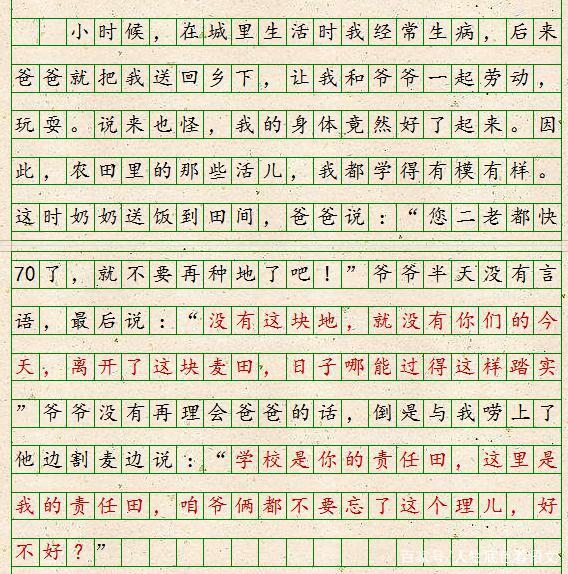 小时候，在城里生活时我经常生病，后来
爸爸就把我送回乡下，让我和爷爷一起劳动，
玩耍。说来也怪，我的身体竟然好了起来。因
此，农田里的那些活儿，我都学得有模有样。
这时奶奶送饭到田间，爸爸说：“您二老都快
70了，就不要再种地了吧！”爷爷半天没有言
语，最后说：“没有这块地，就没有你们的今
天，离开了这块麦田，日子哪能过得这样踏实
”爷爷没有再理会爸爸的话，倒是与我唠上了
他边割麦边说：“学校是你的责任田，这里是
我的责任田，咱爷俩都不要忘了这个理儿，好
不好？”